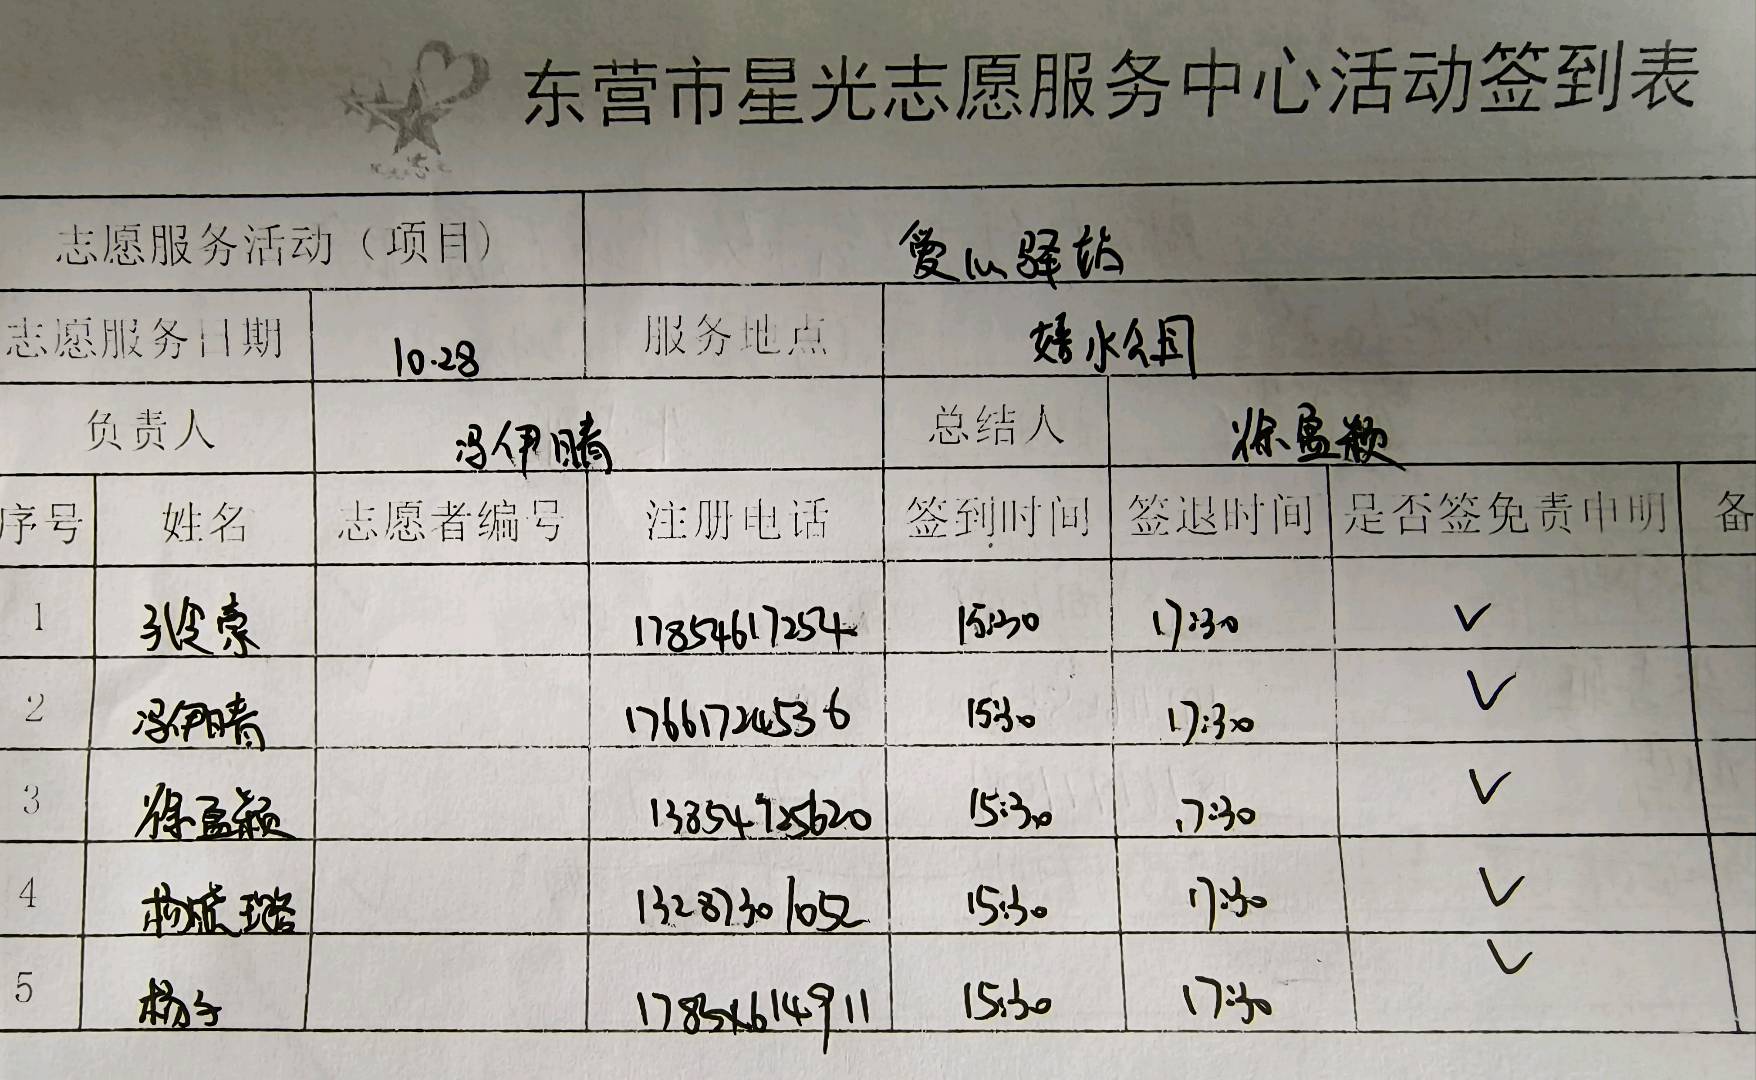 东营市星光志愿服务中心活动签到表
志愿服务活动（项目） 爱心驿站
志愿服务日期 10.28 服务地点 水公园
负责人 冯伊晴 总结人 徐孟颖
序号 姓名 志愿者编号 注册电话 签到时间 签退时间 是否签免责申明 备
1 17854617254 15:30 17:30 ✓
2 冯伊晴 17661724536 15:30 17:30 ✓
3 徐孟颖 13854725620 15:30 17:30 ✓
4 杨 13287301052 15:30 17:30 ✓
5 杨子 17854614911 15:30 17:30 ✓